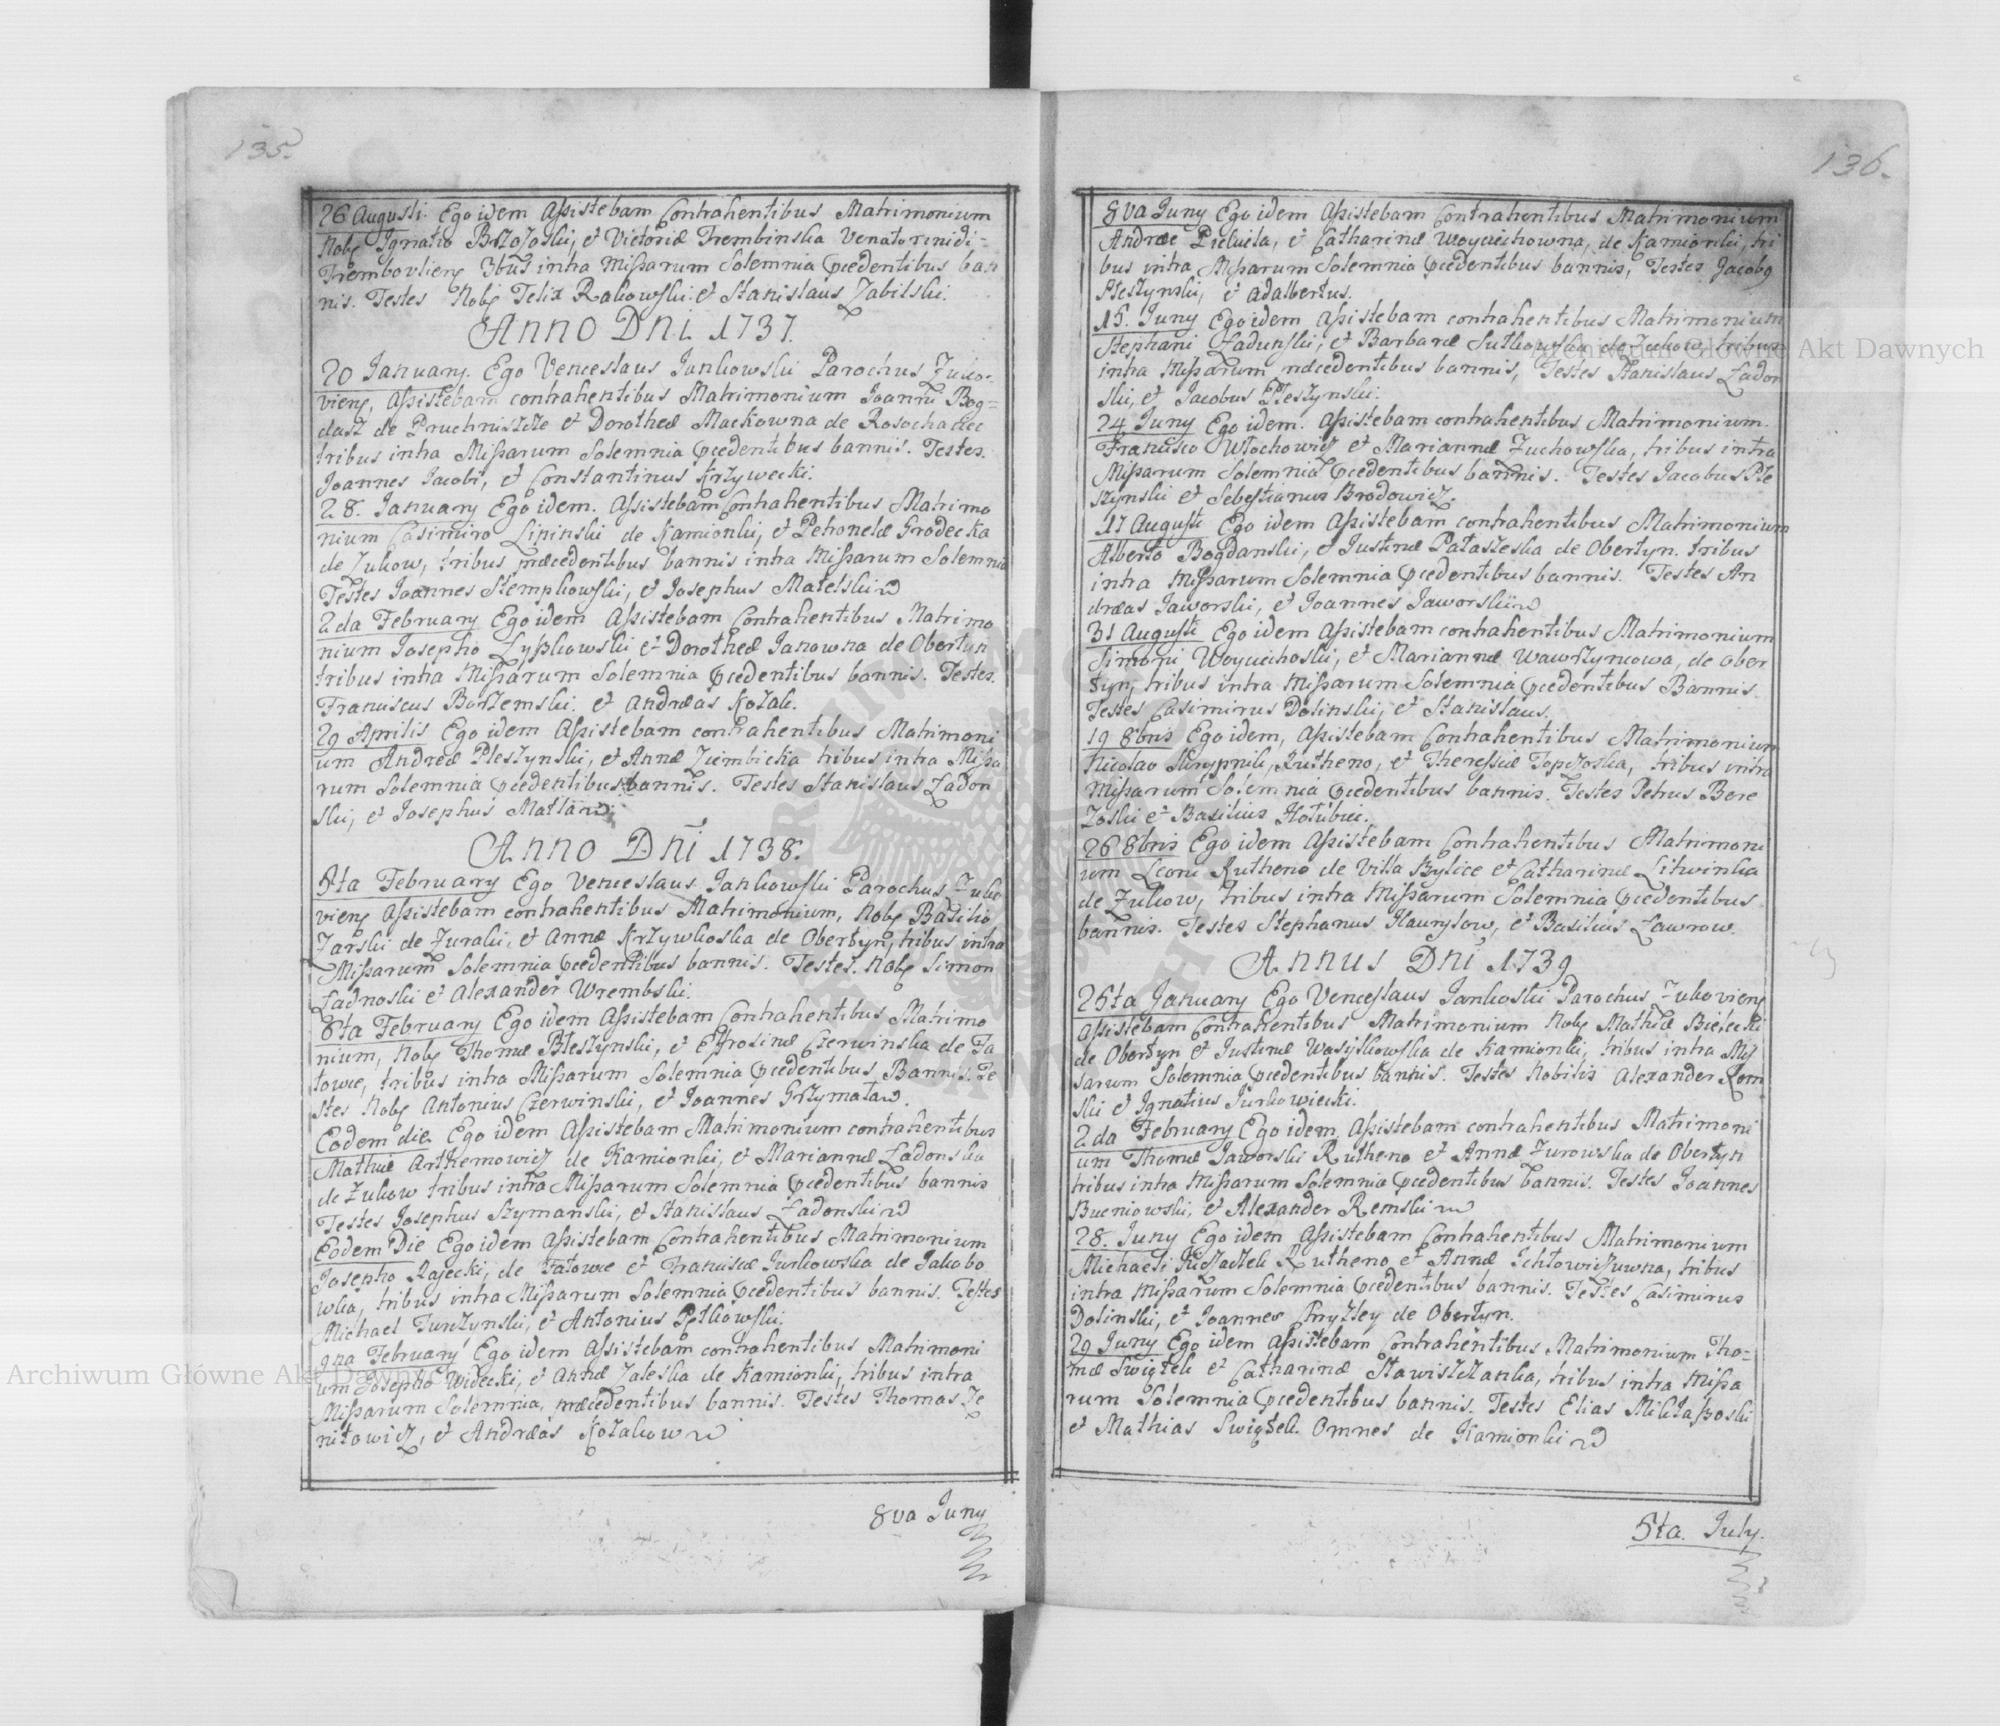 135.
26 Augusti. Ego idem Assistebam Contrahentibus Matrimonium
Nobs Ignatio Brzozoski, et Victoriæ Trembinska Venatorinidi-
Trembovliens 3bus intra Missarum Solemnia pcedentibus ban
nis. Testes Nobs Felix Rakowski et Stanislaus Zabilski.
Anno Dni 1737.
20 January. Ego Venceslaus Jankowski Parochus Zuko-
viens, Assistebam contrahentibus Matrimonium Joanni Bog-
dasz de Pruchniszcze et Dorotheæ Mackowna de Rosochaciec
tribus intra Missarum Solemnia pcedentibus bannis. Testes.
Joannes Jacobi, et Constantinus Krzywecki.
28. January Ego idem. Assistebam Contrahentibus Matrimo
nium Casimiro Lipinski de Kamionki, et Petronelæ Grodecka
de Zukow, tribus præcedentibus bannis intra Missarum Solemnia
Testes Joannes Stempkowski, et Josephus Matelski
2da February Ego idem Assistebam Contrahentibus Matrimo
nium Josepho Lysskowski et Dorotheæ Janowna de Obertyn
tribus intra Missarum Solemnia pcedentibus bannis. Testes.
Franciscus Borzemski. et Andræas Kozak.
29 Aprilis Ego idem Assistebam contrahentibus Matrimoni
um Andreæ Pleszynski, et Annæ Ziembicka tribus intra Missa
rum Solemnia pcedentibus bannis. Testes Stanislaus Ładon
ski, et Josephus Matlan
Anno Dni 1738.
5ta February Ego Venceslaus Jankowski Parochus Zuko
viens Assistebam contrahentibus Matrimonium, Nobs Basilio
Zarski de Zuraki, et Annæ Krzywkoska de Obertyn, tribus intra
Missarum Solemnia pcedentibus bannis. Testes. Nobs Simon
Ładnoski et Alexander Wrembski.
8ta February Ego idem Assistebam Contrahentibus Matrimo
nium, Nobs Thomæ Bleszynski, et Efrosinæ Czerwinska de Ta
towie, tribus intra Missarum Solemnia pcedentibus Bannis. Te
stes Nobs Antonius Czerwinski, et Joannes Grzymała.
Eodem die. Ego idem Assistebam Matrimonium contrahentibus
Mathiæ Arthemowicz de Kamionki, et Mariannæ Ładonska
de Zukow tribus intra Missarum Solemnia pcedentibus bannis
Testes Josephus Szymanski, et Stanislaus Ładonski
Eodem Die Ego idem Assistebam Contrahentibus Matrimonium
Josepho Rajecki, de Tatowie et Francisæ Jurkowska de Jakobo
wka, tribus intra Missarum Solemnia pcedentibus bannis. Testes
Michael Turzynski, et Antonius Petkowski.
9na February Ego idem Assistebam contrahentibus Matrimoni
um Josepho Widecki, et Annæ Zaleska de Kamionki, tribus intra
Missarum Solemnia, præcedentibus bannis. Testes Thomas Ze
nitowicz, et Andræas Kozakow
8va Juny
136.
8va Juny Ego idem Assistebam Contrahentibus Matrimonium
Andræe et Catharinæ Woyciechowna, de Kamionki, tri
bus intra Missarum Solemnia pcedentibus bannis, Testes Jacobg
Pleszynski, et Adalbertus.
15. Juny Ego idem Assistebam contrahentibus Matrimonium
Stephani Ładunski, et Barbaræ Sutkowska de Zukow, tribus
intra Missarum præcedentibus bannis, Testes Stanislaus Ładon
ski, et Jacobus Pleszynski.
24 Juny Ego idem. Assistebam contrahentibus Matrimonium.
Francisco Włochowicz et Mariannæ Zuchowska, tribus intra
Missarum Solemnia pcedentibus bannis. Testes Jacobus Ple
szynski et Sebestianus Brodowicz.
17 Augusti Ego idem Assistebam contrahentibus Matrimonium
Alberto Bogdanski, et Justinæ Pataszeska de Obertyn. tribus
intra Missarum Solemnia pcedentibus bannis. Testes An
dræas Jaworski, et Joannes Jaworski
31 Augusti Ego idem Assistebam contrahentibus Matrimonium
Simoni Woyciechoski, et Mariannæ Wawrzyniowa, de Ober
tyn, tribus intra Missarum Solemnia pcedentibus Bannis.
Testes Casimirus Dolinski, et Stanislaus.
19 8bris Ego idem, Assistebam Contrahentibus Matrimonium
Nicolao Skrypnik, Rutheno, et Theressiæ Topczoska, tribus intra
Missarum Solemnia pcedentibus bannis. Testes Petrus Bere
zoski et Basilius Hołubiec.
26 8bris Ego idem Assistebam Contrahentibus Matrimoni
um Leoni Rutheno de Villa Bylice et Catharinæ Litwinka
de Zukow, tribus intra Missarum Solemnia pcedentibus
bannis. Testes Stephanus Hawrysow, et Basilius Ławrow.
Annus Dni 1739
25ta January Ego Venceslaus Jankoski Parochus Zukoviens
Assistebam Contrahentibus Matrimonium Nobs Mathiæ Bielecki
de Obertyn et Justinæ Wasylkowska de Kamionki, tribus intra Mis
sarum Solemnia pcedentibus bannis. Testes Nobilis Alexander Rem
ski et Ignatius Jurkowiecki.
2da February Ego idem, Assistebam contrahentibus Matrimoni
um Thomæ Jaworski Rutheno et Annæ Zurowska de Obertyn
tribus intra Missarum Solemnia pcedentibus bannis. Testes Joannes
Bueniowski, et Alexander Remski
28. Juny Ego idem Assistebam Contrahentibus Matrimonium
Michaeli Rutheno et Annæ tribus
intra Missarum Solemnia pcedentibus bannis. Testes Casimirus
Dolinski, et Joannes de Obertyn.
29 Juny Ego idem Assistebam Contrahentibus Matrimonium Tho-
mæ Swigtek et Catharinæ Stawiszczanka, tribus intra Missa
rum Solemnia pcedentibus bannis. Testes Elias
et Mathias Swigtek. Omnes de Kamionki
5ta. July.
Archiwum Główne Akt Dawnych
Archiwum Główne Akt Dawnych